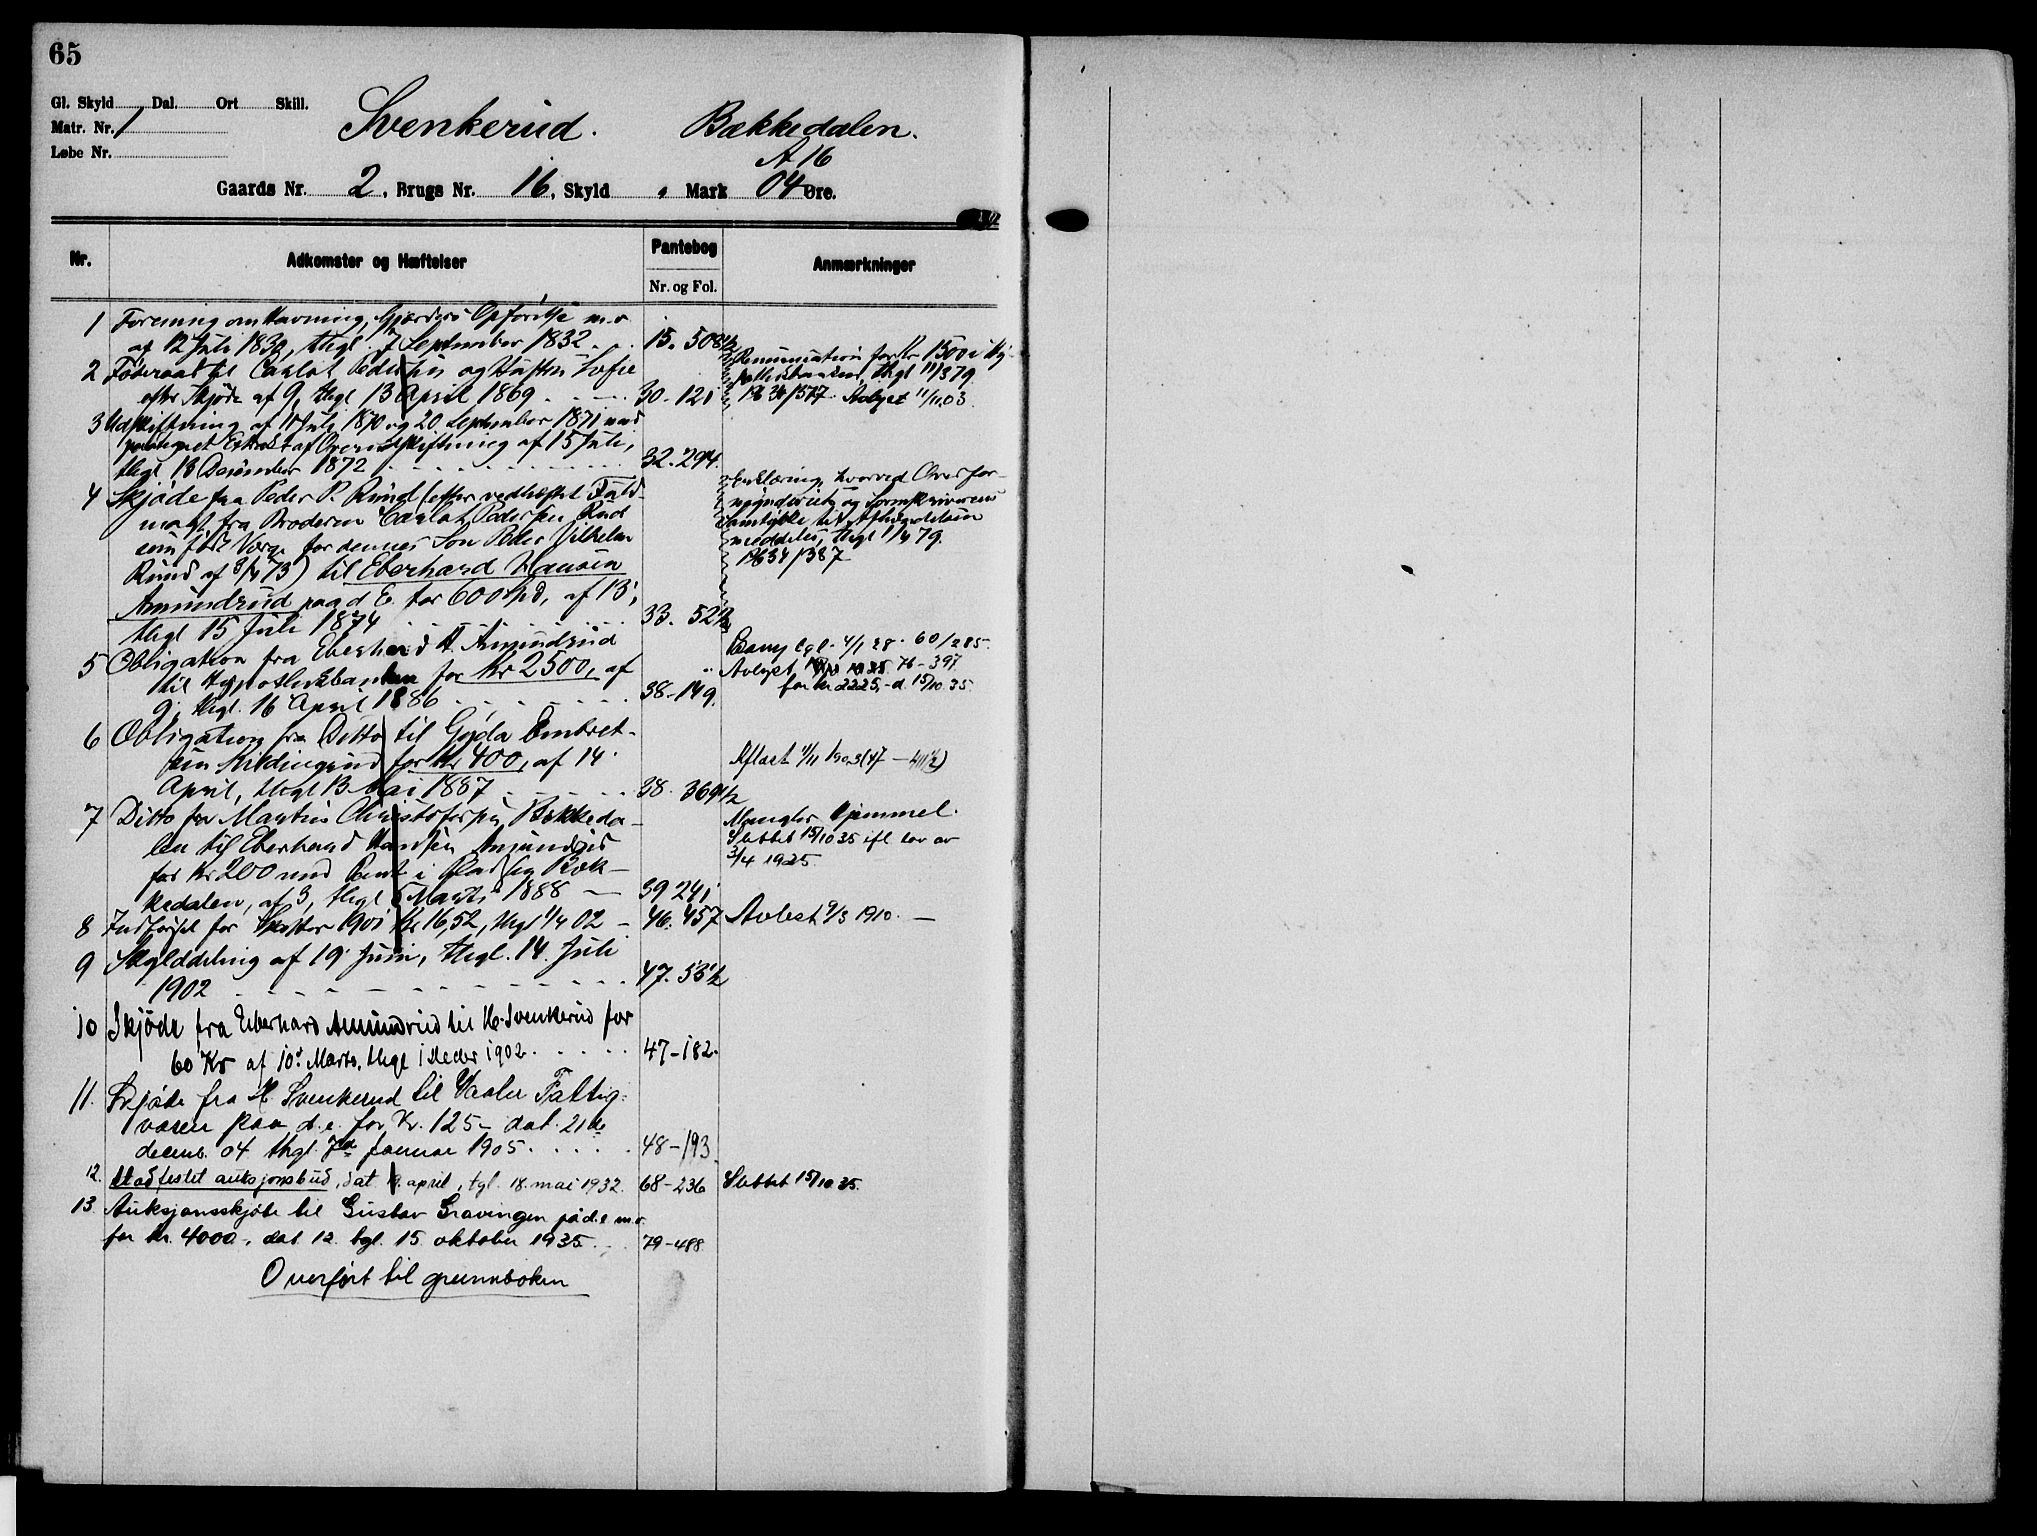 65
Gl. Skyld Dal. Ort Skill.
Matr. Nr. 1
Løbe Nr.
Svenkerud. Bækkedalen.
A 16
Gaards Nr. 2, Brugs Nr. 16, Skyld , Mark 04 Øre.
Nr. Adkomster og Hæftelser Pantebog Anmærkninger
Nr. og Fol.
1 Forening om Havning, Gjærders Opførelse m.v.
af 12 Juli 1832, thgl. 7 September 1832 15. 508 1/2
2 Føderaad til Carlot Pedersen og Hustru Sofie
efter Skjøde af 9, thgl 13 April 1869 30-121
Renunciation for Kr 1500 i Hy-
pothekbanken, thgl 11/3 79
Pb 34/317. Avlyst 11/11.03
3 Udskiftning af 10 Juli 1870 og 20 September 1871 med
paategnet Extract af Overudskiftning af 15 Juli,
thgl 13 December 1872 32-294
4 Skjøde fra Peder P. Rund (efter vedhæftet Fuld-
magt fra Broderen Carlot Pedersen Rud
som født Værge for dennes Søn Peder Vilhelm
Rund af 8/4 73) til Eberhard Hansen
Amundsrud paa d. E. for 600 Spd, af 13,
thgl 15 Juli 1874 33. 52 1/2
Erklæring, hvorved Overfor-
mynderiets og Sorenskriverens
Samtykke til Afhændelsen
meddeles, thgl 1/4 79.
Pb 34/387
5 Obligation fra Eberhard H. Amundsrud
til Hypothekbanken for Kr 2500, af
9, thgl. 16 April 1886 38-149
tgl. 4/1 28. 60/285.
Avlyst 76-397
for kr 2225,- d. 15/10 35.
6 Obligation fra Ditto til Gyda Embret-
sen Kildingrud for Kr 400, af 14
April, thgl 13 Mai 1887 38. 369 1/2
Aflæst 11/11 1903 (47-411 1/2)
7 Ditto fra Martin Christofersen Bækkeda-
len til Eberhard Hansen Amundsrud
for Kr 200 med Pant i Plads(en) Bæk-
kedalen, af 3, thgl 5 Marts 1888 39 241
Mangler Hjemmel.
Slettet 15/10 35 ifl lov av
3/4 1925.
8 Indførsel for Skatter 1901 Kr 16,52, thgl 1/4 02 46. 457 Avlest 9/3 1910.
9 Skylddeling af 19 Juni, thgl. 14 Juli
1902 47. 53 1/2
10 Skjøde fra Eberhard Amundsrud til H. Svenkerud for
60 Kr af 10. Marts, thgl i steder 1902 47-182.
11. Skjøde fra H Svenkerud til Vaaler Fattig-
væsen paa d.e. for Kr. 125,- dat. 21de
decemb. 04 thgl. 7de januar 1905 48-193
12. Stadfestet auksjonsbud, dat. april, tgl. 18. mai 1932. 68-236 Slettet 15/10 35.
13. Auksjonsskjøte til Gustav Gravingen på d.e. m.v.
for kr. 4000,-, dat 12. tgl. 15. oktober 1935 79-488.
Overført til grunnboken